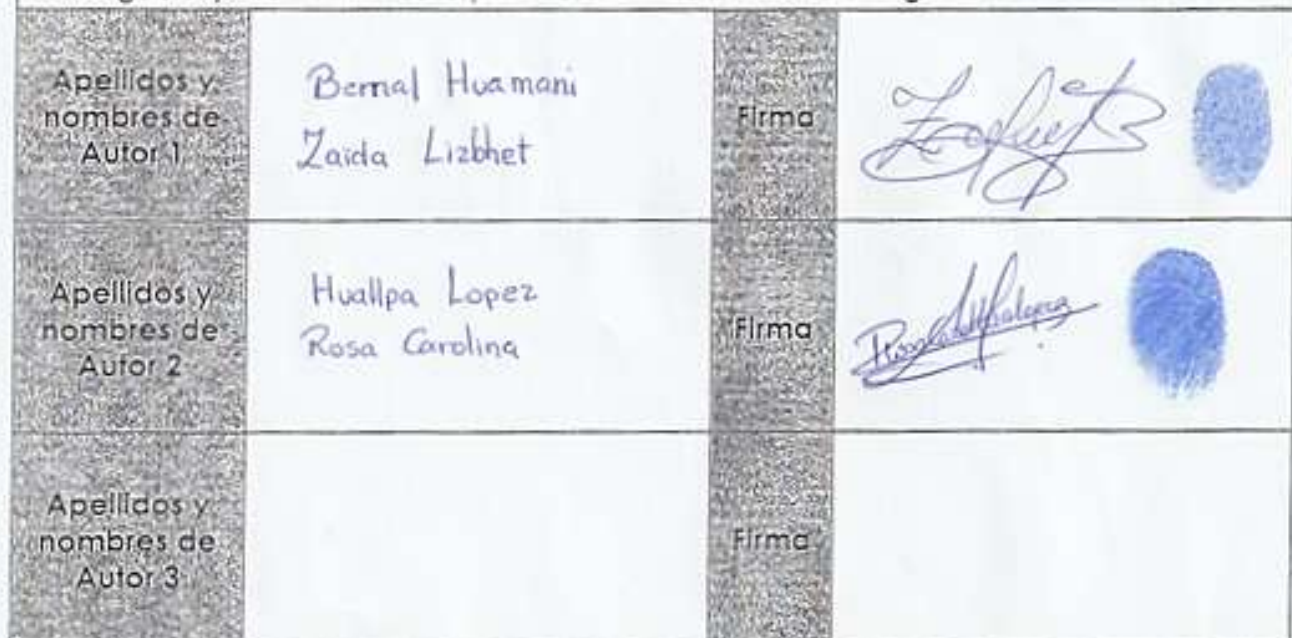 Apellidos y
nombres de
Autor 1
Bernal Huamani
Zaida Lizbhet
Firma
Apellidos y
nombres de
Autor 2
Huallpa Lopez
Rosa Carolina
Firma
Apellidos y
nombres de
Autor 3
Firma